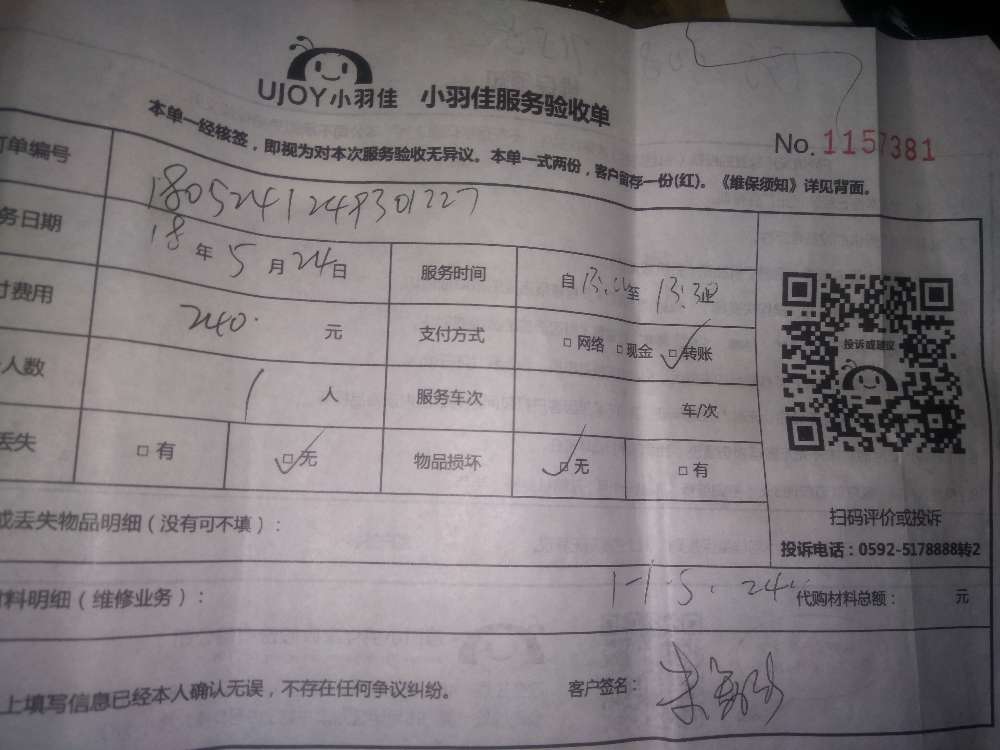 UJOY小羽佳 小羽佳服务验收单
No. 1157381
本单一经核签，即视为对本次服务验收无异议。本单一式两份，客户留存一份(红)。《维保须知》详见背面。
订单编号 1805241248301227
务日期 18年5月24日 服务时间 自13:00至13:30止
付费用 240. 元 支付方式 □网络 □现金 □转账
人数 1 人 服务车次 车/次
丢失 □有 □无 物品损坏 □无 □有
投诉或建议
扫码评价或投诉
投诉电话：0592-5178888转2
或丢失物品明细（没有可不填）：
材料明细（维修业务）： 代购材料总额： 元
上填写信息已经本人确认无误，不存在任何争议纠纷。 客户签名：